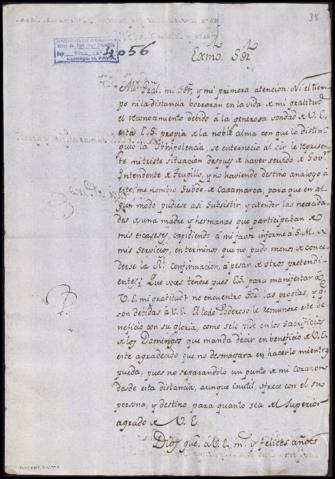 38
4056
Exmo. Sor.
mi Sor. y mi primera atencion: Ni el tiem-
po ni la distancia borraran en la vida de mi gratitud
el reconocimiento debido á la generosa bondad de V.E.
esta propia de la noble alma con que lo distin-
guió la Omnipotencia se enterneció al oir le represente
mi triste situacion despues de haver servido de
Intendente de Truxillo, y no haviendo destino analogo á
este, me nombró Subdo. de Caxamarca, para que en al-
gun modo pudiese asi Subsistir y atender las necesida-
des de una madre y hermanas que participaban de
mis escaseses, á mi informe á S.M. de
mis Servicios, en terminos que no pudo menos de conce-
derse la Rl. Confirmacion, á pesar de otros pretendi-
entes. Que voces tendré pues para manifestar á
V.E. mi gratitud? no encuentro Sor. las propias, y dig-
nas debidas á V.E. El todo Poderoso le remunere este be-
neficio con su gloria, como selo pido en los Sacrificios
de los Domingos que manda decir en beneficio de V.E.
este agradecido que no desmayara en hacerlo mientras
pueda; pues no separandolo un punto de mi corazon
desde esta distancia, aunque inutil, ofrece con el su
persona, y destino para quanto sea del Superior
agrado de V.E.
Dios gue. á V.E. ms. y felices años